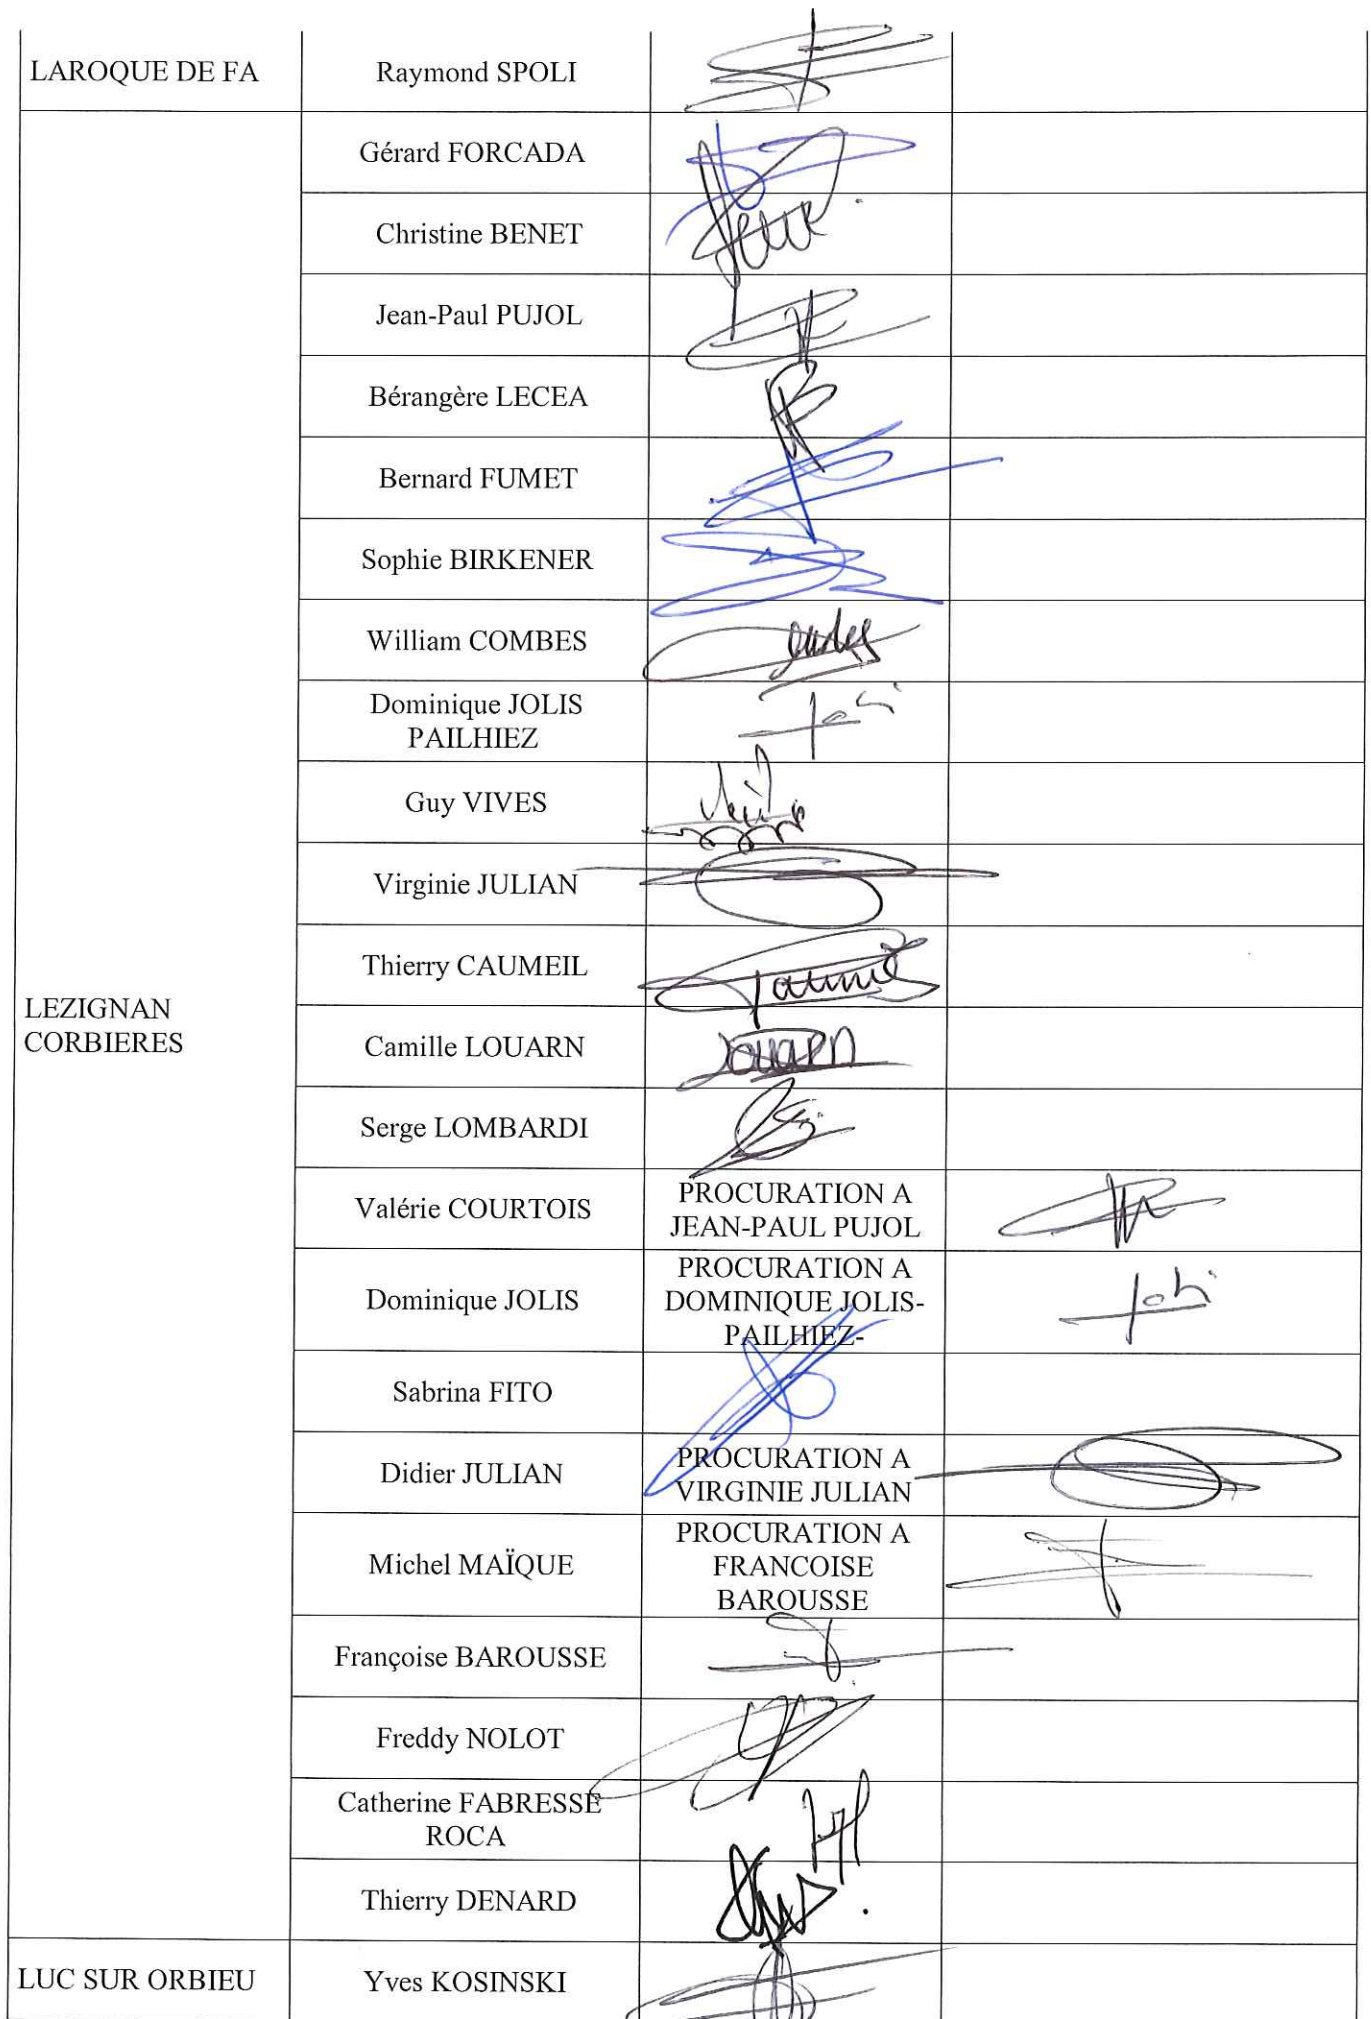 LAROQUE DE FA
Raymond SPOLI
Gérard FORCADA
Christine BENET
Jean-Paul PUJOL
Bérangère LECEA
Bernard FUMET
Sophie BIRKENER
William COMBES
Dominique JOLIS
PAILHIEZ
Guy VIVES
Virginie JULIAN
Thierry CAUMEIL
LEZIGNAN
CORBIERES
Camille LOUARN
Louarn
Serge LOMBARDI
Valérie COURTOIS
PROCURATION A
JEAN-PAUL PUJOL
Dominique JOLIS
PROCURATION A
DOMINIQUE JOLIS-
PAILHIEZ-
Sabrina FITO
Didier JULIAN
PROCURATION A
VIRGINIE JULIAN
Michel MAÏQUE
PROCURATION A
FRANCOISE
BAROUSSE
Françoise BAROUSSE
Freddy NOLOT
Catherine FABRESSE
ROCA
Thierry DENARD
LUC SUR ORBIEU
Yves KOSINSKI